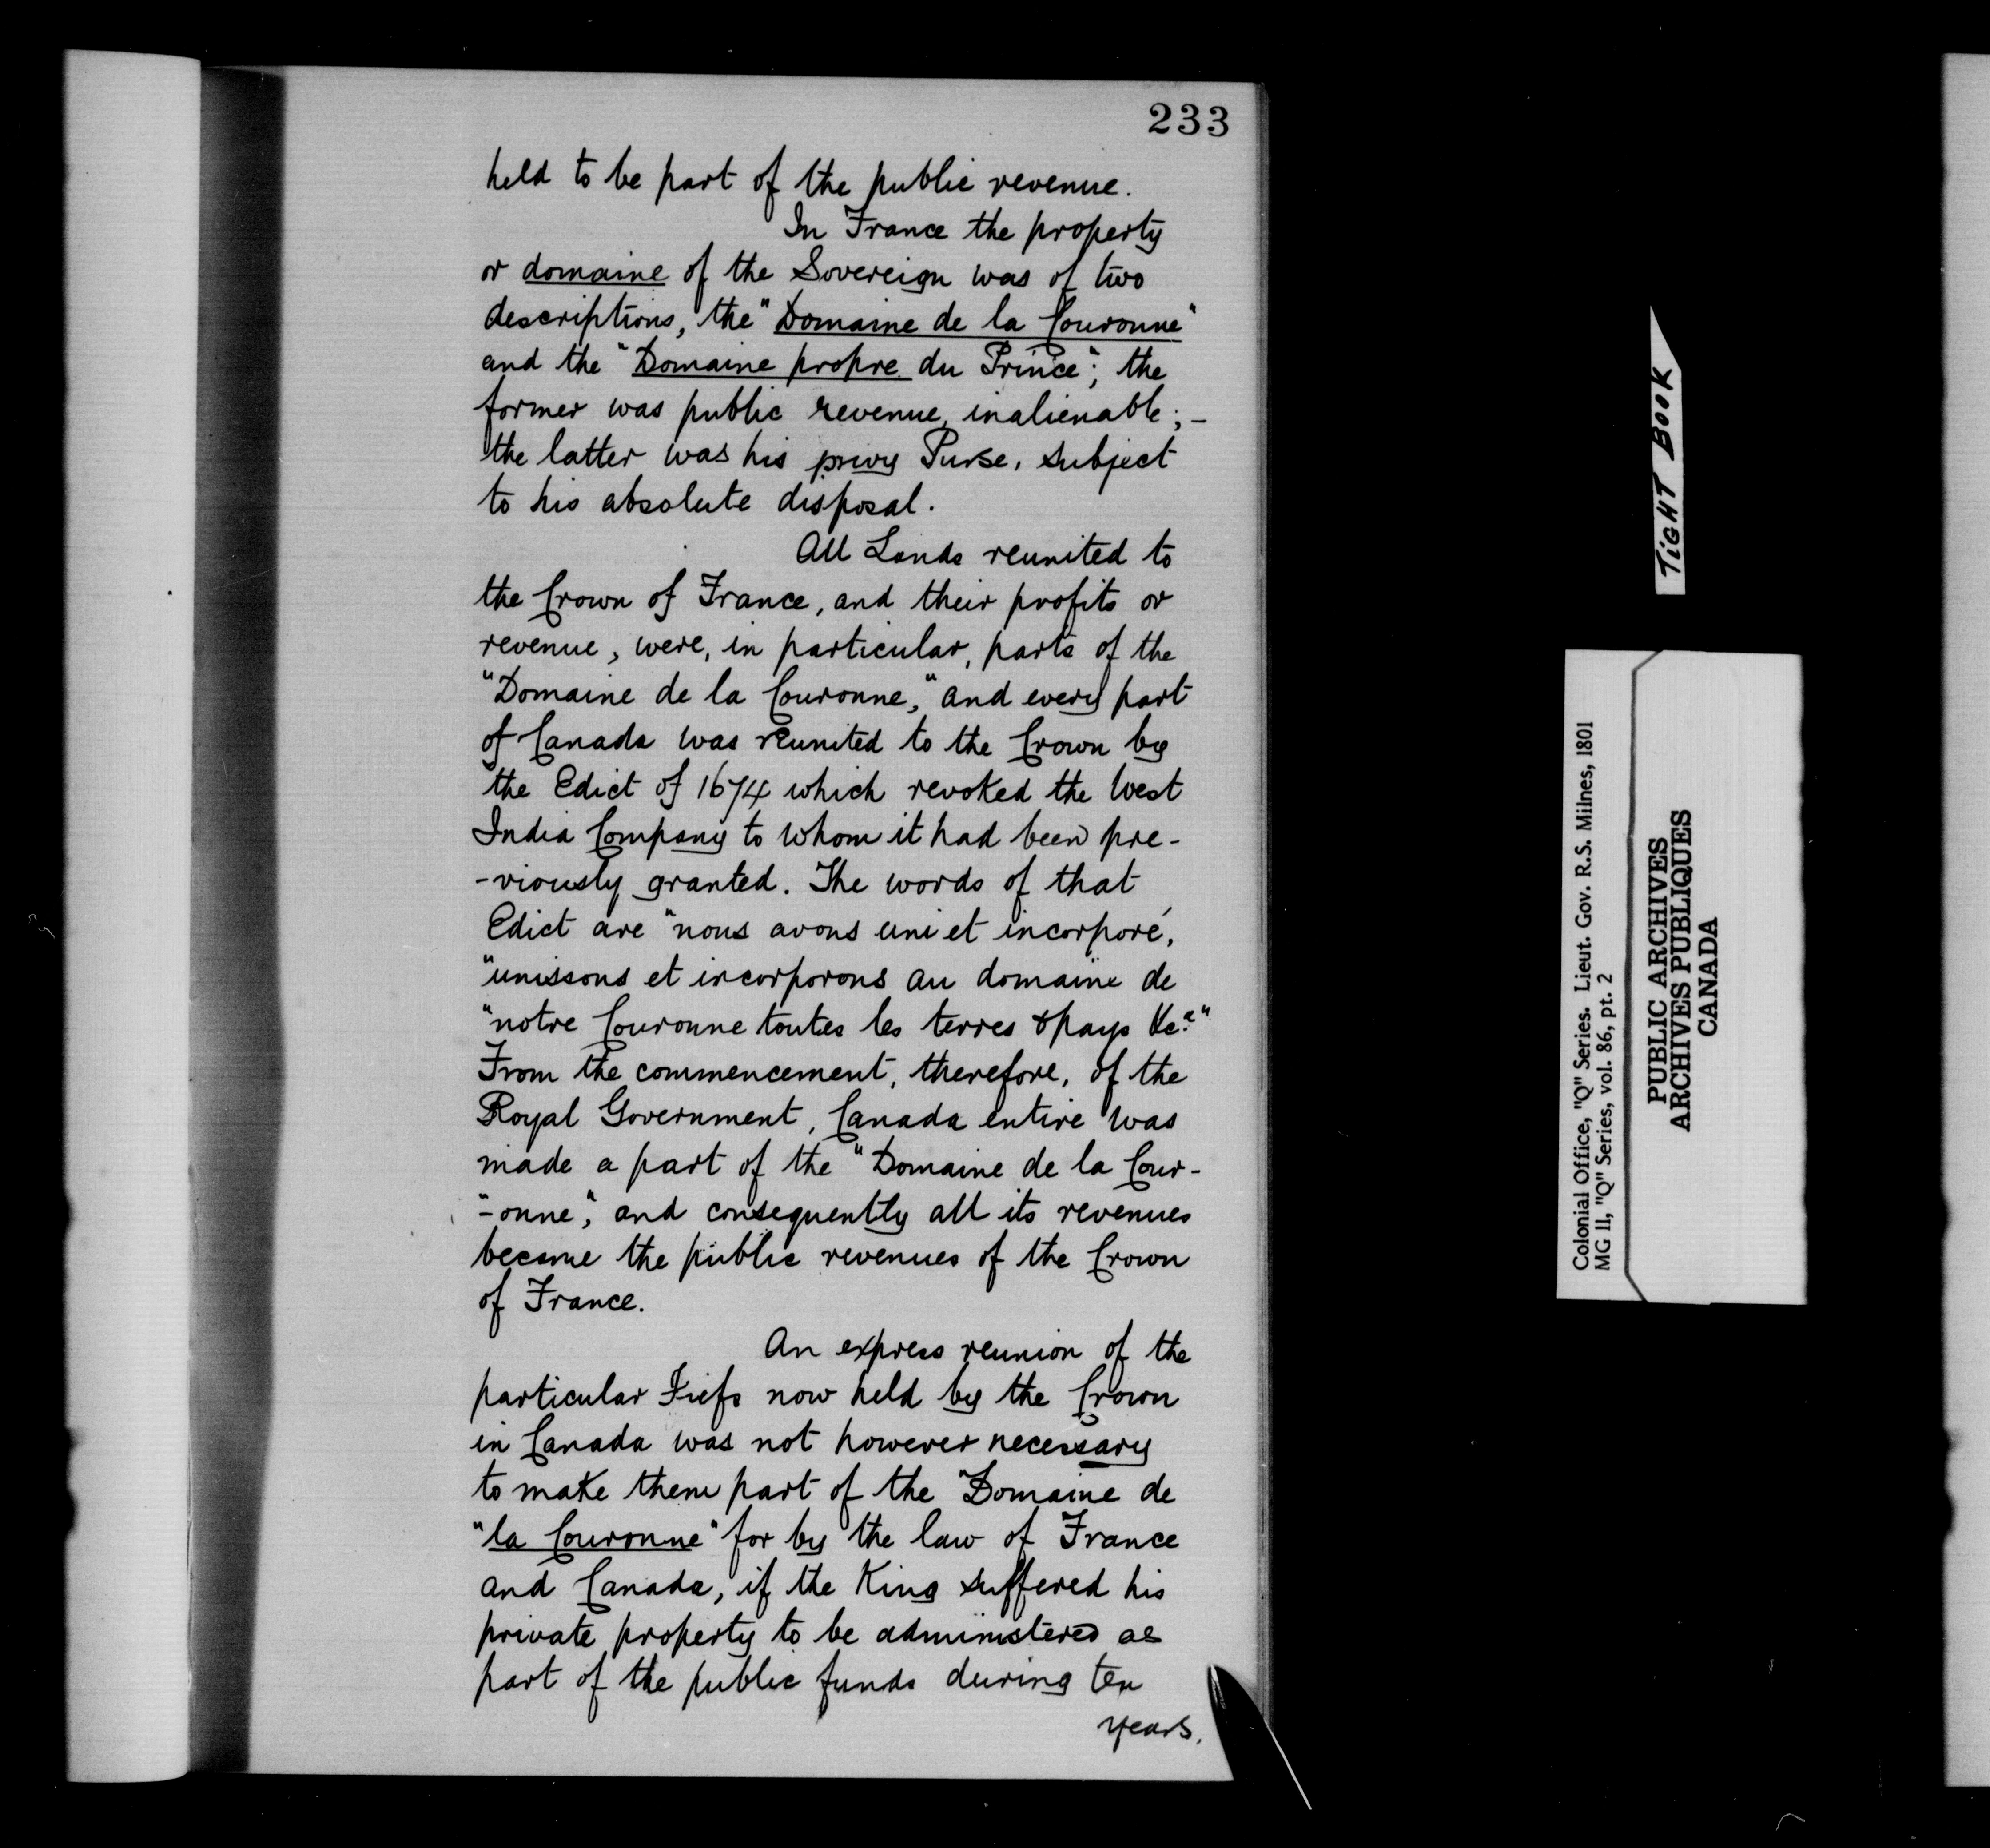 233
held to be part of the public revenue.
In France the property
or domaine of the Sovereign was of two
descriptions, the "Domaine de la Couronne"
and the "Domaine propre du Prince"; the
former was public revenue, inalienable; -
the latter was his privy Purse, subject
to his absolute disposal.
All Lands reunited to
the Crown of France, and their profits or
revenue, were, in particular, parts of the
"Domaine de la Couronne," and every part
of Canada was reunited to the Crown by
the Edict of 1674 which revoked the West
India Company to whom it had been pre-
-viously granted. The words of that
Edict are "nous avons uni et incorporé,
"unissons et incorporons au domaine de
"notre Couronne toutes les terres & pays &c.a"
From the commencement, therefore, of the
Royal Government, Canada entire was
made a part of the "Domaine de la Cour-
"-onne", and consequently all its revenues
became the public revenues of the Crown
of France.
An express reunion of the
particular Fiefs now held by the Crown
in Canada was not however necessary
to make them part of the "Domaine de
"la Couronne" for by the law of France
and Canada, if the King suffered his
private property to be administered as
part of the public funds during ten
years.
TIGHT BOOK
Colonial Office, "Q" Series. Lieut. Gov. R.S. Milnes, 1801
MG 11, "Q" Series, vol. 86, pt. 2
PUBLIC ARCHIVES
ARCHIVES PUBLIQUES
CANADA